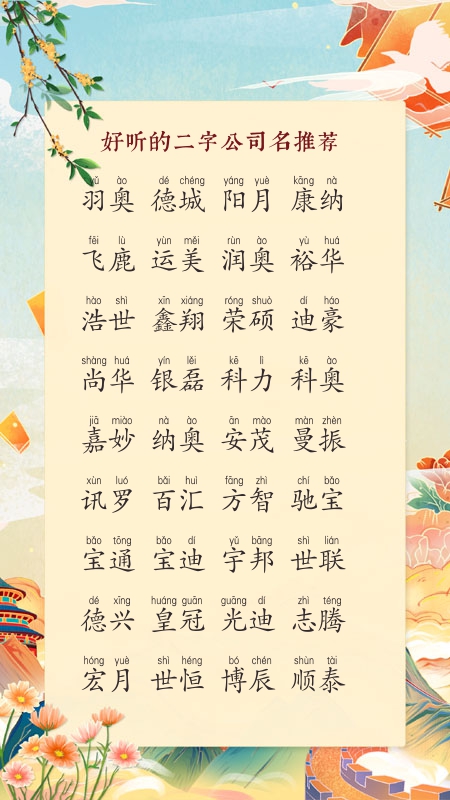 好听的二字公司名推荐
yǔ ào dé chéng yáng yuè kāng nà
羽奥 德城 阳月 康纳
fēi lù yùn měi rùn ào yù huá
飞鹿 运美 润奥 裕华
hào shì xīn xiáng róng shuò dí háo
浩世 鑫翔 荣硕 迪豪
shàng huá yín lěi kē lì kē ào
尚华 银磊 科力 科奥
jiā miào nà ào ān mào màn zhèn
嘉妙 纳奥 安茂 曼振
xùn luó bǎi huì fāng zhì chí bǎo
讯罗 百汇 方智 驰宝
bǎo tōng bǎo dí yǔ bāng shì lián
宝通 宝迪 宇邦 世联
dé xīng huáng guān guāng dí zhì téng
德兴 皇冠 光迪 志腾
hóng yuè shì héng bó chén shùn tài
宏月 世恒 博辰 顺泰